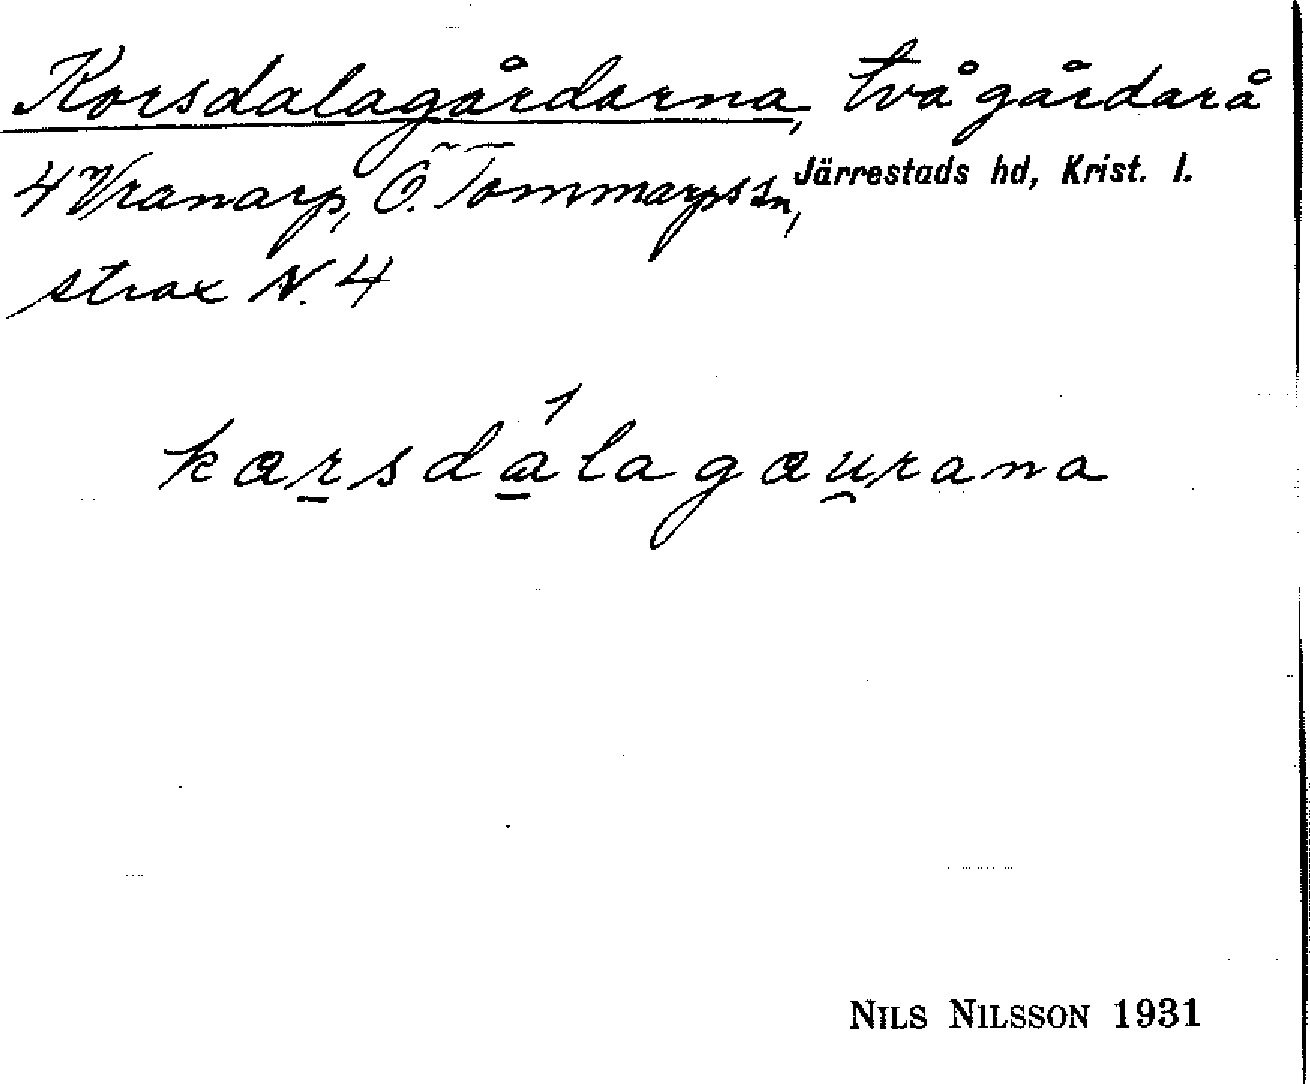 Korsdalagårdarna, två gårdar å
4 Vranarp, Ö. Tommarps sn, Järrestads hd, Krist. l.
strax N. 4
kærsdálagæurana
NILS NILSSON 1931